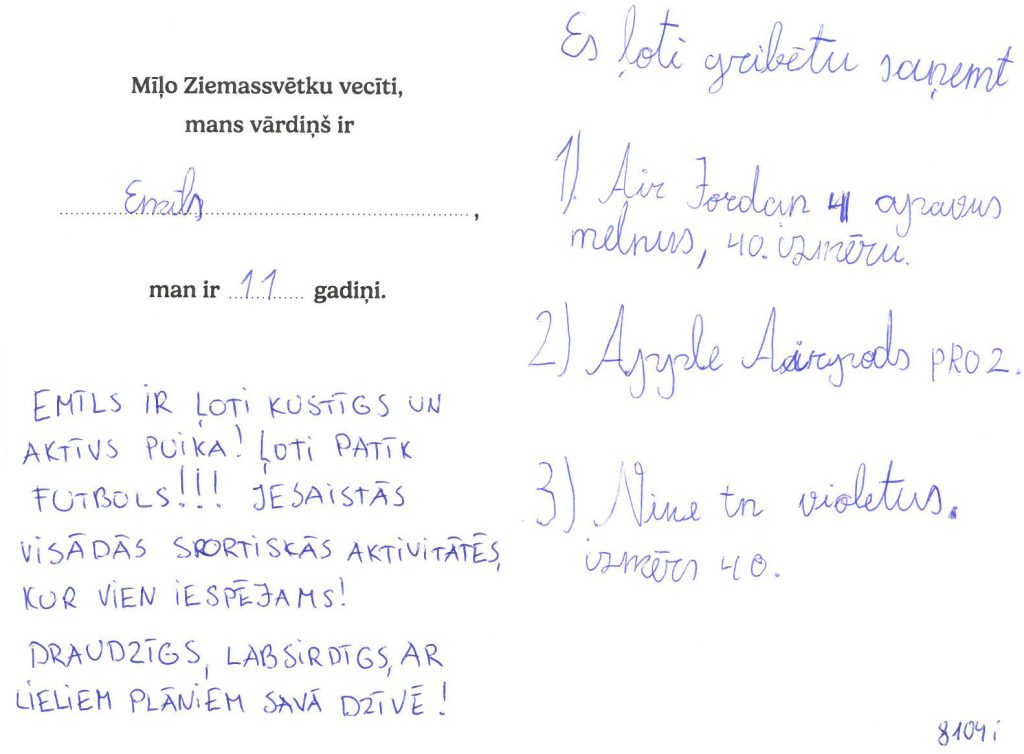 Mīļo Ziemassvētku vecīti,
mans vārdiņš ir
Emīls,
man ir 11 gadiņi.
EMĪLS IR ĻOTI KUSTĪGS UN
AKTĪVS PUIKA! ĻOTI PATĪK
FUTBOLS!!! IESAISTĀS
VISĀDĀS SPORTISKĀS AKTIVITĀTĒS,
KUR VIEN IESPĒJAMS!
DRAUDZĪGS, LABSIRDĪGS, AR
LIELIEM PLĀNIEM SAVĀ DZĪVĒ!
Es ļoti gribētu saņemt
1). Air Jordan 4 apavus
melnus, 40. izmēru.
2) Apple Airpods PRO 2.
3) Nike tn violetus.
izmērs 40.
8104i